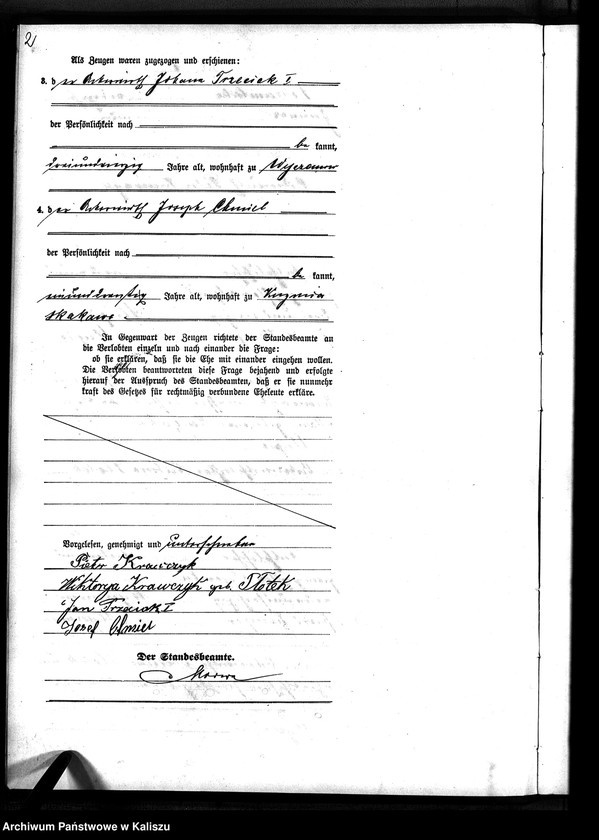 2
Als Zeugen waren zugezogen und erschienen:
3. der Ackerwirth Johann Trzeciak I
der Persönlichkeit nach
be kannt,
Jahre alt, wohnhaft zu
4. der Ackerwirth Joseph Chmiel
der Persönlichkeit nach
be kannt,
Jahre alt, wohnhaft zu Kuznica
skakawa.
In Gegenwart der Zeugen richtete der Standesbeamte an
die Verlobten einzeln und nach einander die Frage:
ob sie erklären, daß sie die Ehe mit einander eingehen wollen.
Die Verlobten beantworteten diese Frage bejahend und erfolgte
hierauf der Ausspruch des Standesbeamten, daß er sie nunmehr
kraft des Gesetzes für rechtmäßig verbundene Eheleute erkläre.
Vorgelesen, genehmigt und unterschrieben
Piotr Krawczyk
Wiktorya Krawczyk geb. Tlotek
Jan Trzeciak I
Jozef Chmiel
Der Standesbeamte.
Archiwum Państwowe w Kaliszu